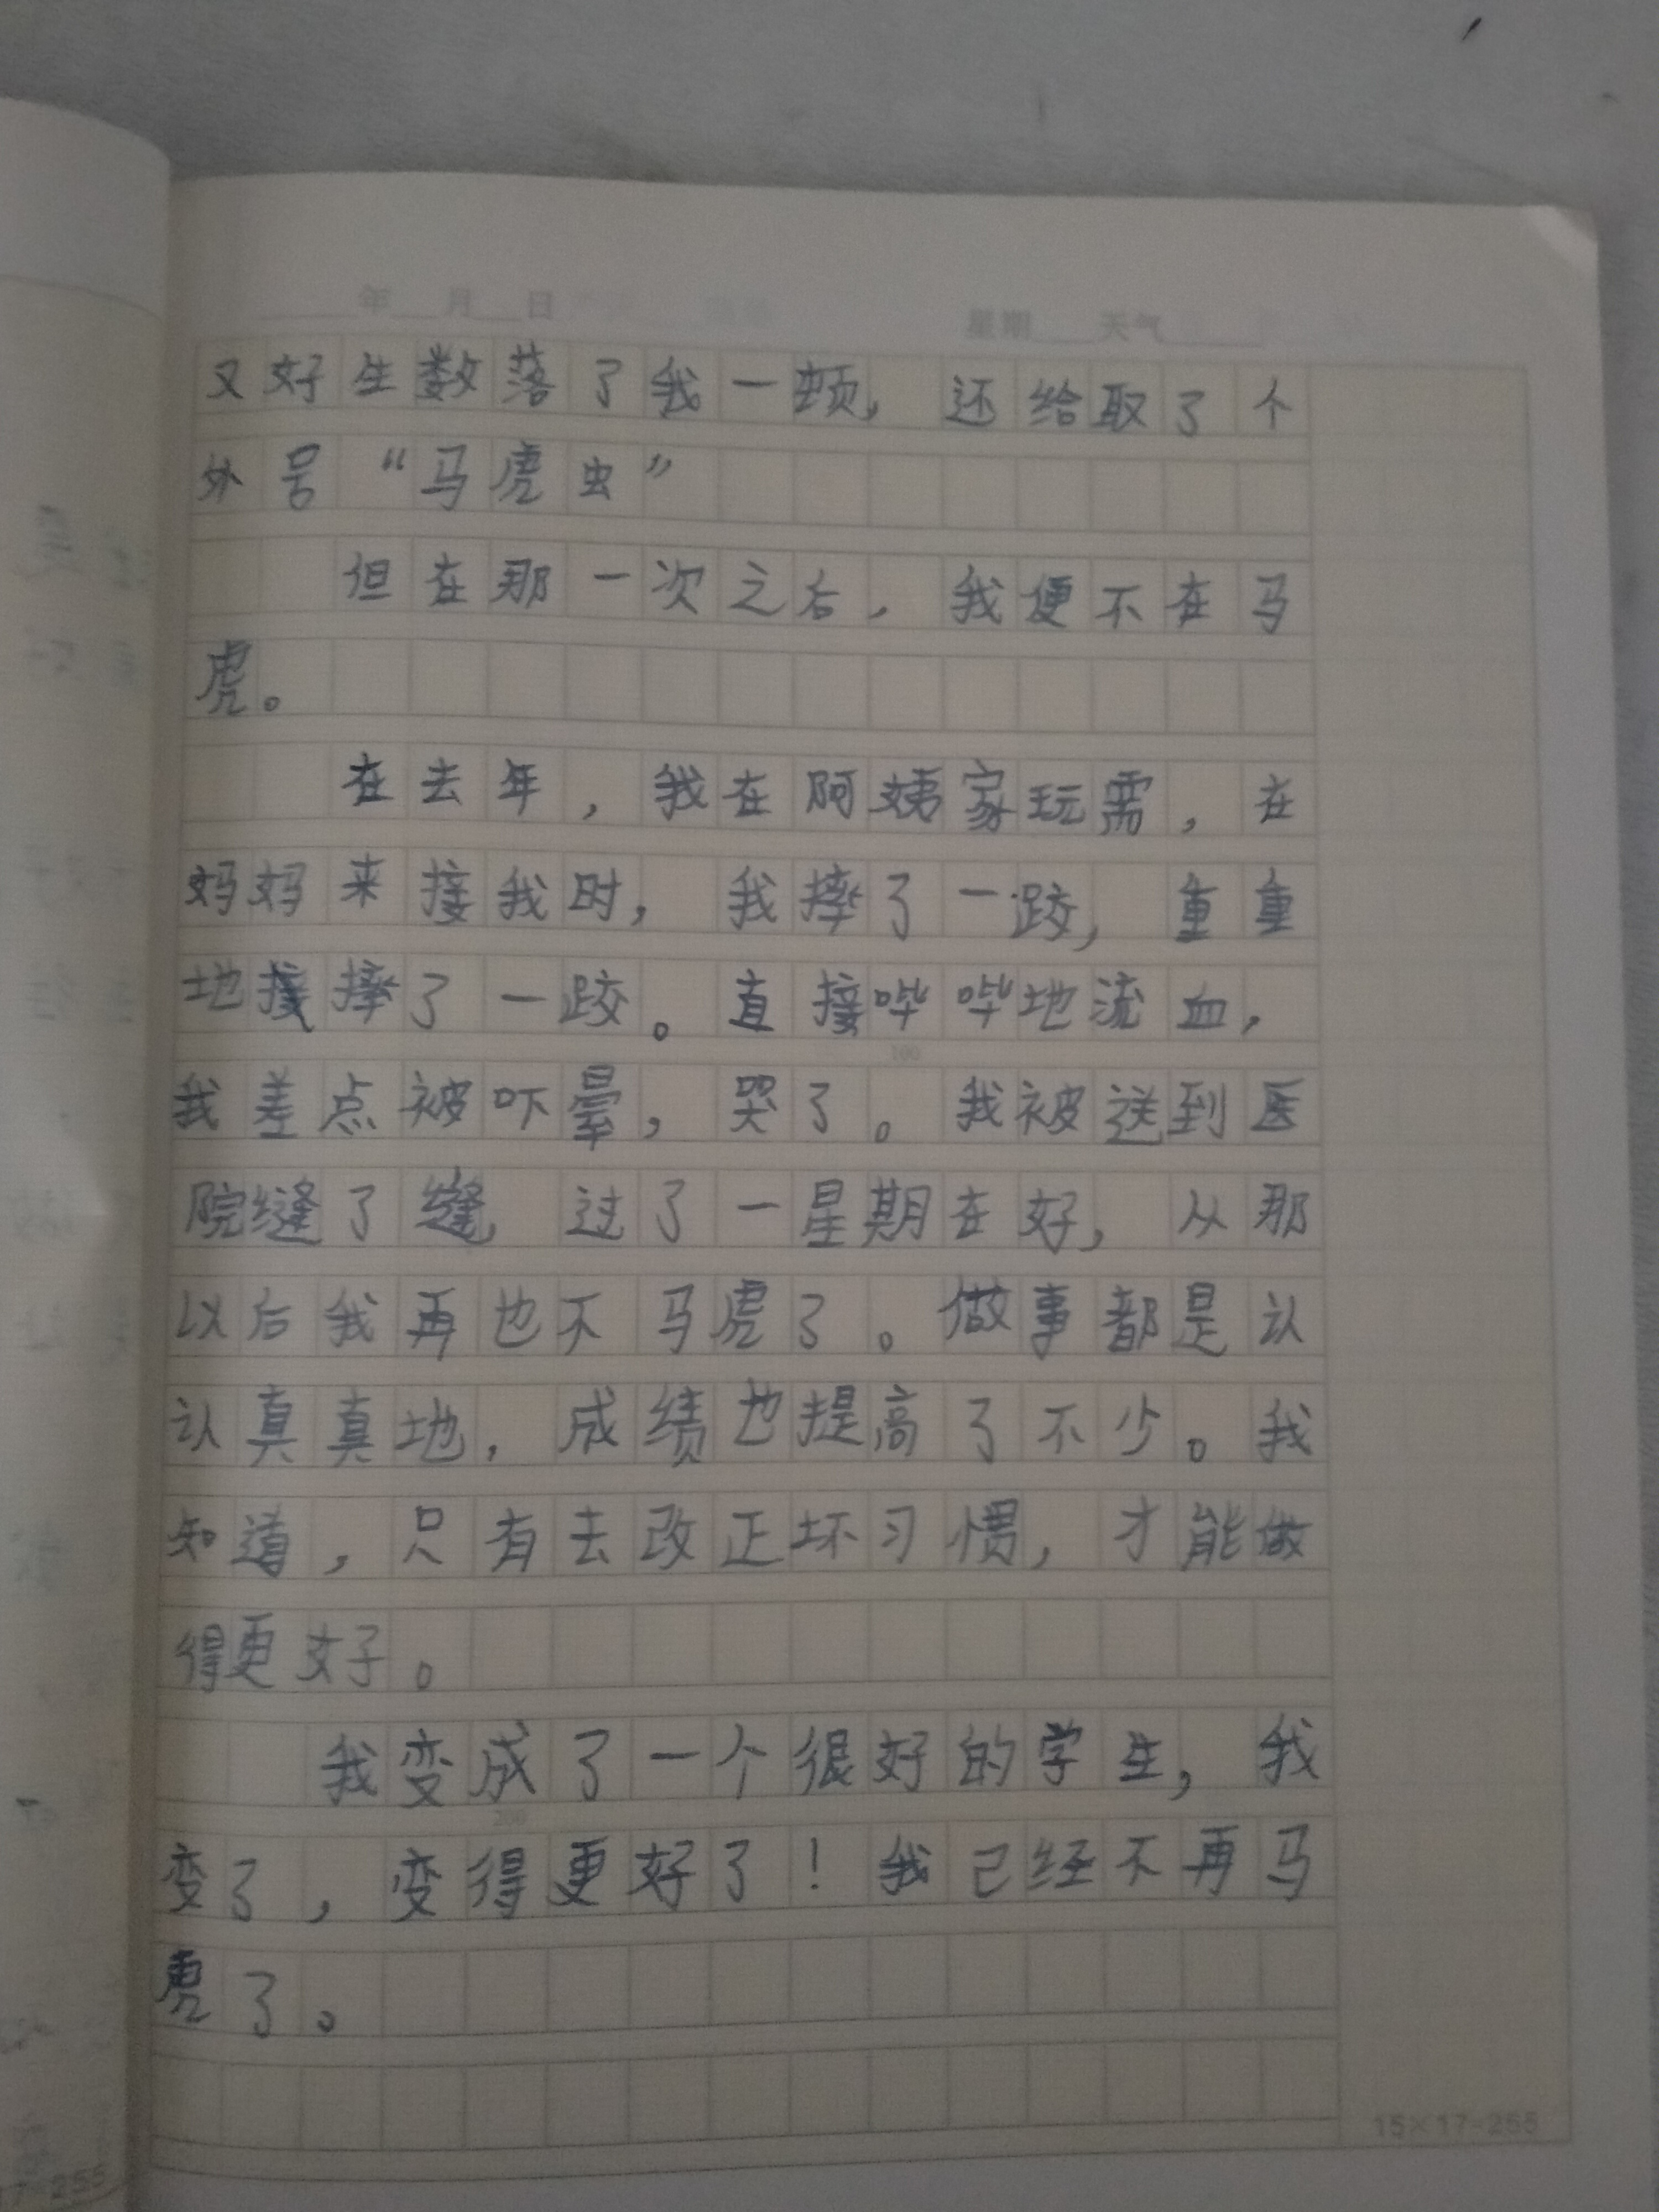 年 月 日
星期 天气
又好生数落了我一顿，还给取了个
外号“马虎虫”
但在那一次之后，我便不在马
虎。
在去年，我在阿姨家玩需，在
妈妈来接我时，我摔了一跤，重重
地摔了一跤。直接哗哗地流血，
我差点被吓晕，哭了。我被送到医
院缝了缝，过了一星期在好，从那
以后我再也不马虎了。做事都是认
认真真地，成绩也提高了不少。我
知道，只有去改正坏习惯，才能做
得更好。
我变成了一个很好的学生，我
变了，变得更好了！我已经不再马
虎了。
15×17=255